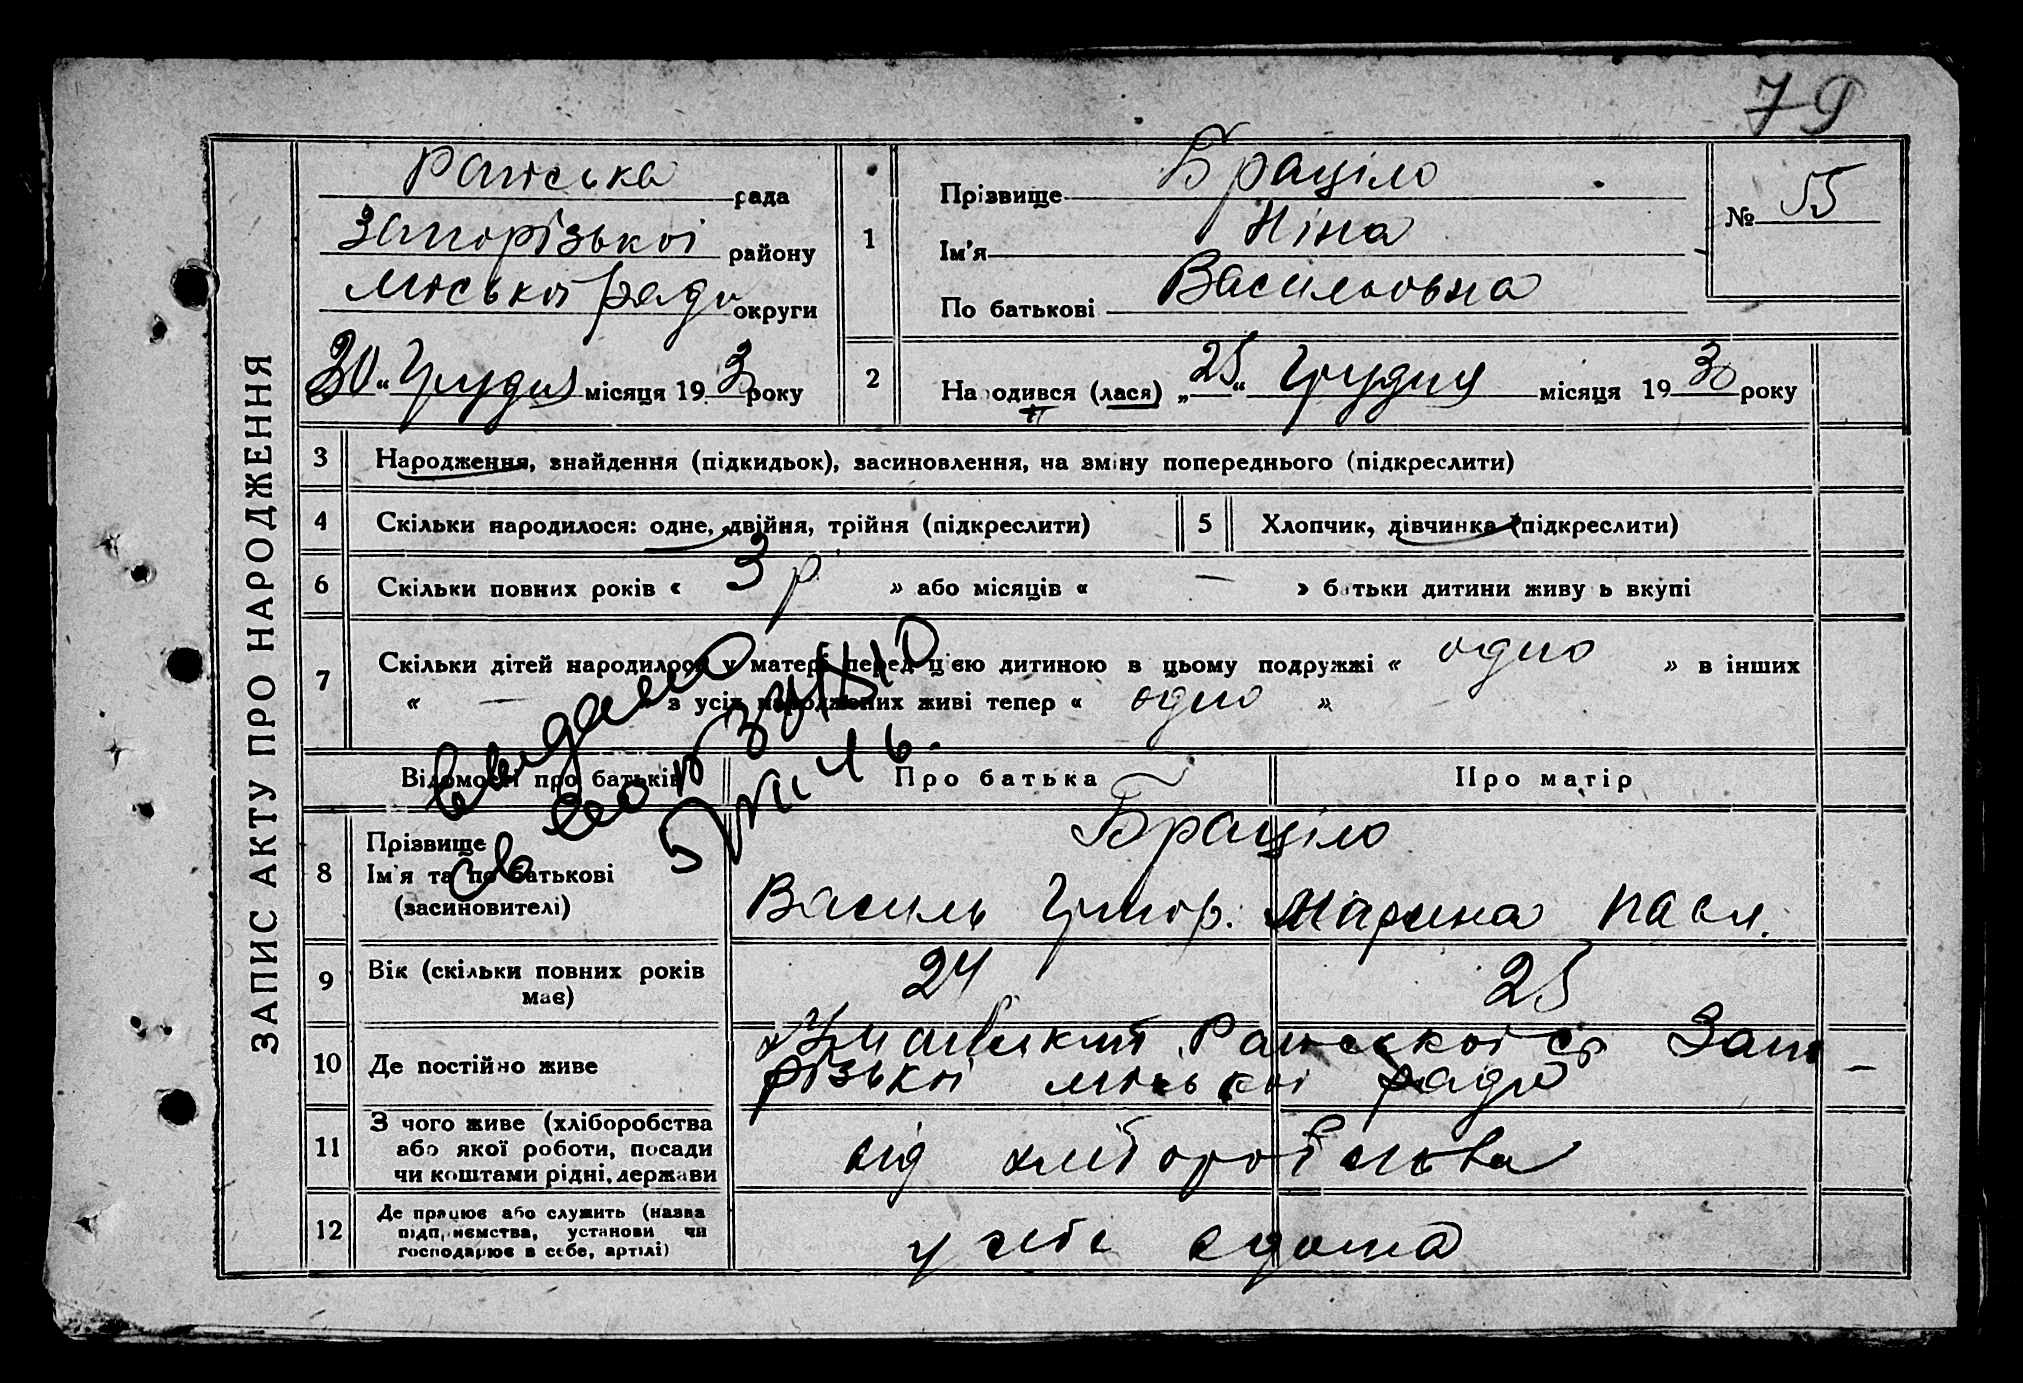 79
Раїська рада
Запорізької району
міської ради округи
"30" Грудня місяця 193 року
ЗАПИС АКТУ ПРО НАРОДЖЕННЯ
1
Прізвище Браціло
Ім'я Ніна
По батькові Васильовна
№ 55
2
Народився (лася) „25“ Грудня місяця 1930 року
3 Народження, знайдення (підкидьок), засиновлення, на зміну попереднього (підкреслити)
4 Скільки народилося: одне, двійня, трійня (підкреслити)
5 Хлопчик, дівчинка (підкреслити)
6 Скільки повних років « 3 р » або місяців « — » батьки дитини живуть вкупі
7 Скільки дітей народилося у матері перед цією дитиною в цьому подружжі « одно » в інших
« — з усіх народжених живі тепер « одно »
видано
5/VII 46.
Відомості про батьків
Про батька
Про матір
8 Прізвище
Ім'я та по батькові
(засиновителі)
Браціло
Василь Григор. Марина Павл.
9 Вік (скільки повних років
має)
24
25
10 Де постійно живе
Раїської ср Запо-
різької міської ради
11 З чого живе (хліборобства
або якої роботи, посади
чи коштами рідні, держави
від хліборобства
12 Де працює або служить (назва
підприємства, установи чи
господарює в себе, артілі)
у себе вдома